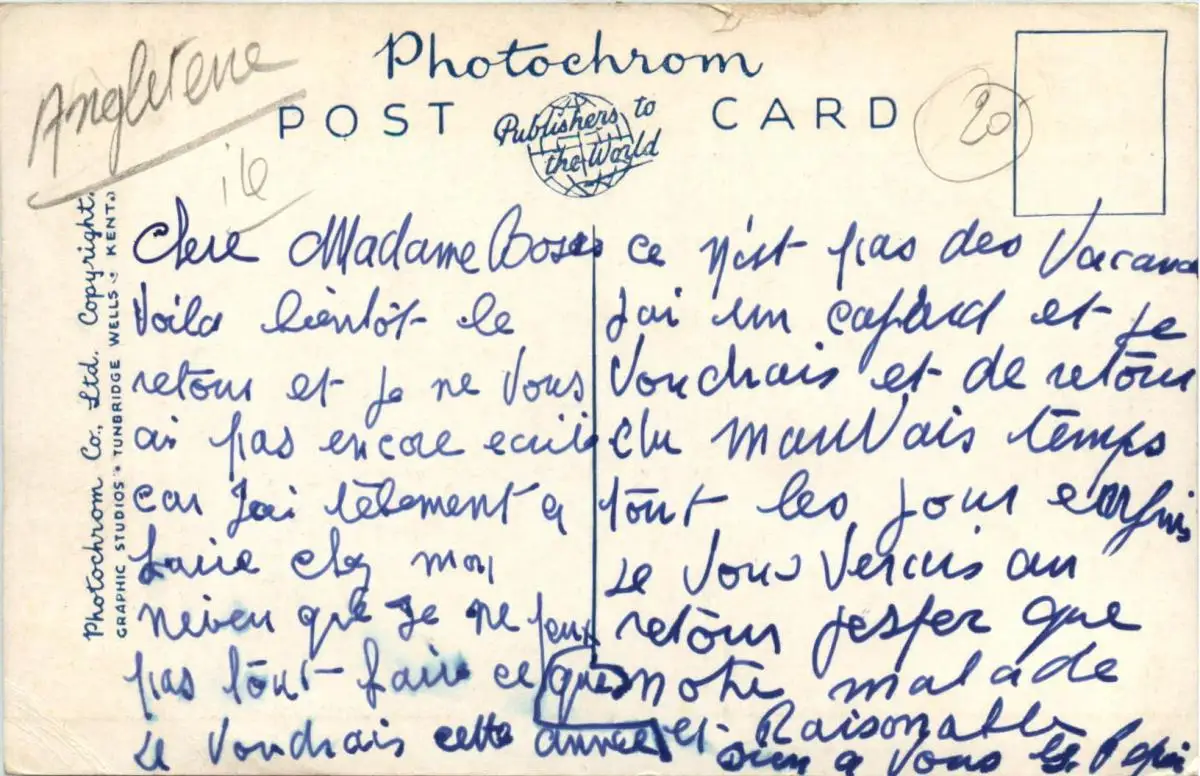 Angleterre
ile
Photochrom
POST CARD
Publishers to
the World
20
Photochrom Co., Ltd. Copyright.
GRAPHIC STUDIOS • TUNBRIDGE WELLS • KENT
Chere Madame
Voila bientôt le
retour et je ne Vous
ai pas encore
car Jai têlement a
faire chez mon
neveu que Je ne peux
pas tout faire ce que
Je Voudrais cette année
ce n'est pas des
Jai un cafard et je
Voudrais et de retour
du mauVais temps
tout les jour enfin
Je Vous Verais au
retour jesper que
notre malade
et Raisonable
bien a Vous